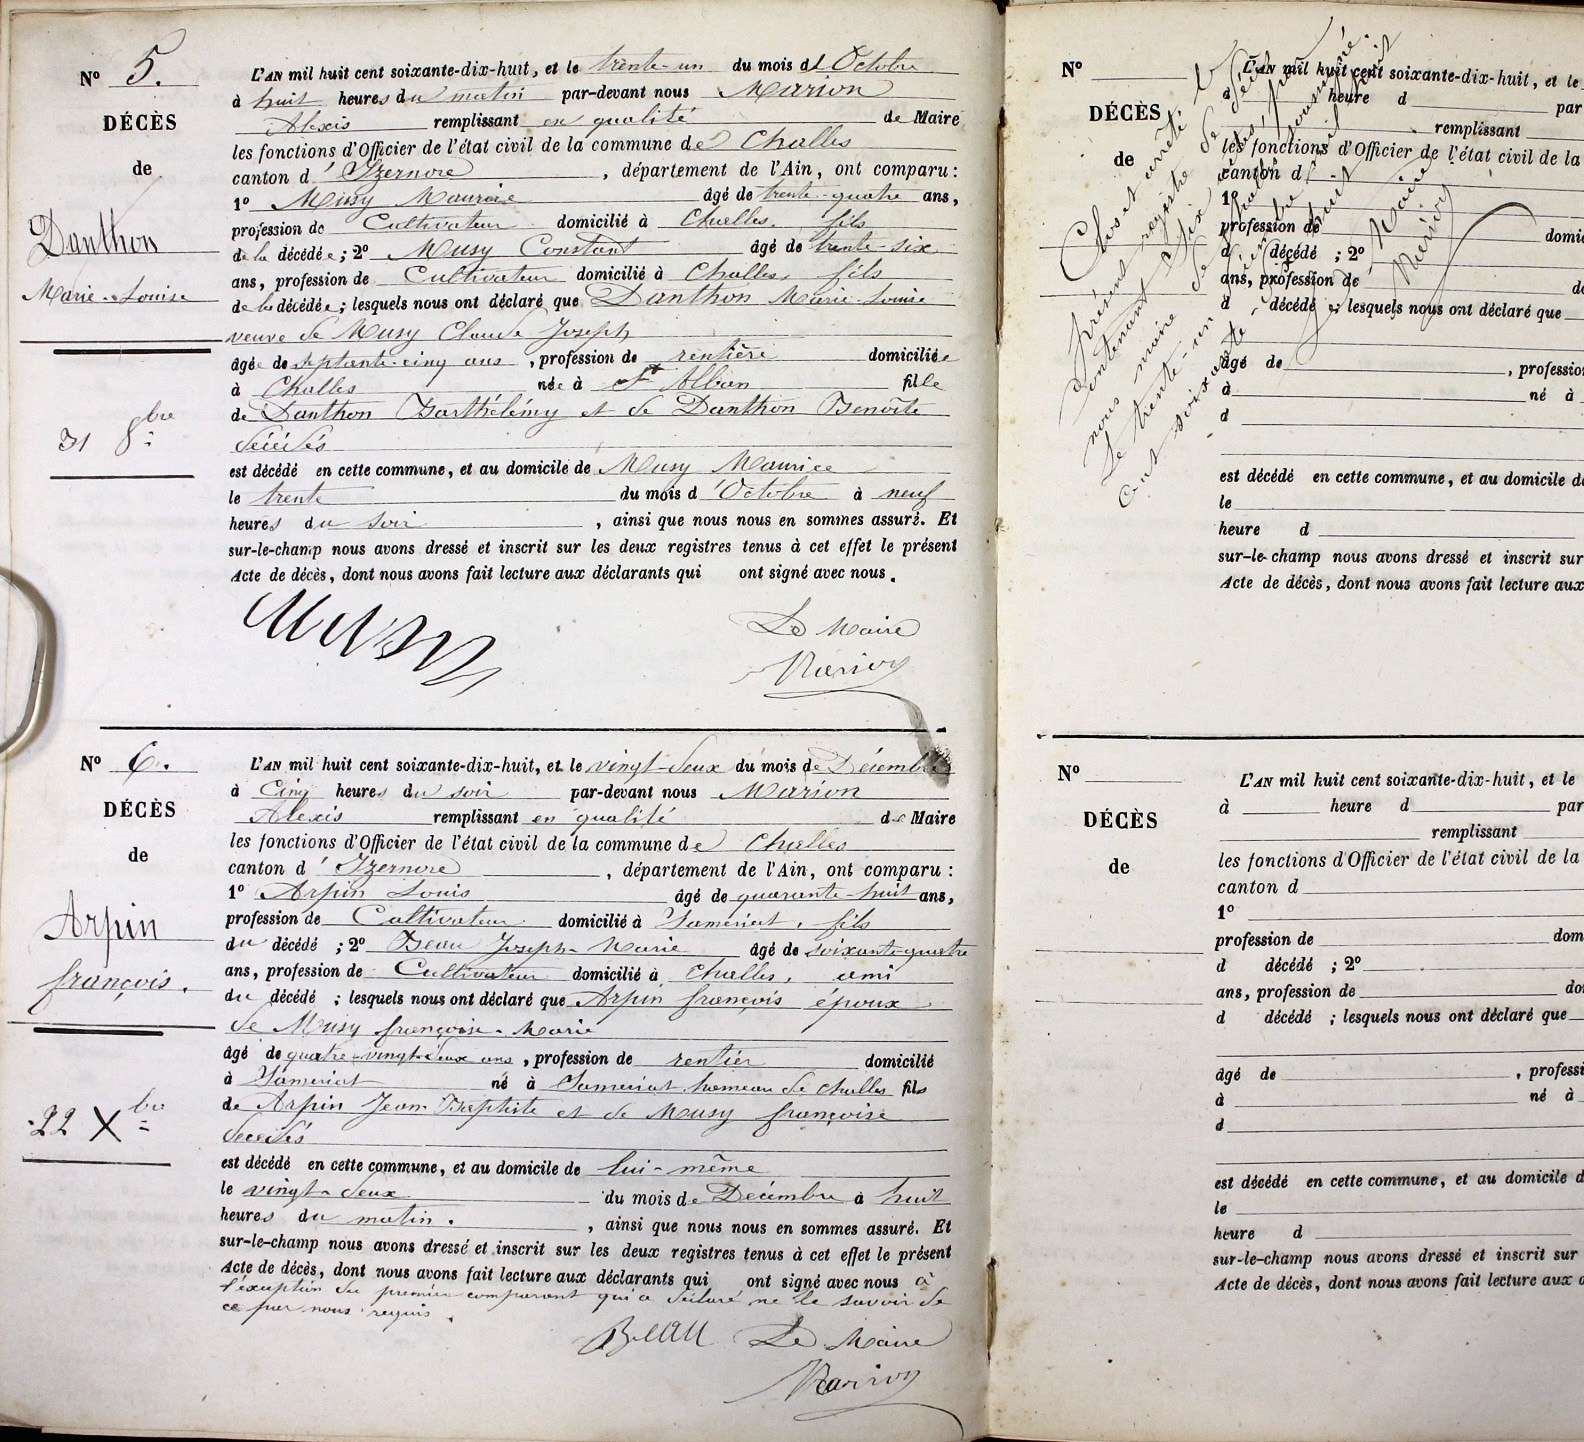 N° 5.
DÉCÈS
de
Danthon
Marie-Louise
31 8bre
L'AN mil huit cent soixante-dix-huit, et le trente-un du mois d'Octobre
à huit heures du matin par-devant nous Marion
Alexis remplissant en qualité de Maire
les fonctions d'Officier de l'état civil de la commune de Challes
canton d'Izernore, département de l'Ain, ont comparu :
1° Musy Maurice âgé de trente-quatre ans,
profession de Cultivateur domicilié à Challes, fils
de la décédée ; 2° Musy Constant âgé de trente-six
ans, profession de Cultivateur domicilié à Challes, fils
de la décédée ; lesquels nous ont déclaré que Danthon Marie-Louise
veuve de Musy Claude Joseph
âgée de septante-cinq ans, profession de rentière domiciliée
à Challes née à St Alban fille
de Danthon Barthélémy et de Danthon Benoîte
décédés
est décédé en cette commune, et au domicile de Musy Maurice
le trente du mois d'Octobre à neuf
heures du soir, ainsi que nous nous en sommes assuré. Et
sur-le-champ nous avons dressé et inscrit sur les deux registres tenus à cet effet le présent
Acte de décès, dont nous avons fait lecture aux déclarants qui ont signé avec nous.
Musy
Le Maire
Marion
N° 6.
DÉCÈS
de
Arpin
françois.
22 Xbre
L'AN mil huit cent soixante-dix-huit, et le vingt-deux du mois de Décembre
à Cinq heures du soir par-devant nous Marion
Alexis remplissant en qualité de Maire
les fonctions d'Officier de l'état civil de la commune de Challes
canton d'Izernore, département de l'Ain, ont comparu :
1° Arpin Louis âgé de quarante-huit ans,
profession de Cultivateur domicilié à Samériat, fils
du décédé ; 2° Beau Joseph-Marie âgé de soixante-quatre
ans, profession de Cultivateur domicilié à Challes, ami
du décédé ; lesquels nous ont déclaré que Arpin françois époux
de Musy françoise-Marie
âgé de quatre-vingt-deux ans, profession de rentier domicilié
à Samériat né à Samériat hameau de Challes fils
de Arpin Jean-Baptiste et de Musy françoise
décédés
est décédé en cette commune, et au domicile de lui-même
le vingt-deux du mois de Décembre à huit
heures du matin., ainsi que nous nous en sommes assuré. Et
sur-le-champ nous avons dressé et inscrit sur les deux registres tenus à cet effet le présent
Acte de décès, dont nous avons fait lecture aux déclarants qui ont signé avec nous à
l'exeption du premier comparant qui a déclaré ne le savoir de
ce par nous requis.
Beau
Le Maire
Marion
N°
DÉCÈS
de
L'AN mil huit cent soixante-dix-huit, et le
heure d par
remplissant
les fonctions d'Officier de l'état civil de la
canton d
1°
profession de domic
d décédé ; 2°
ans, profession de do
d décédé ; lesquels nous ont déclaré que
âgé de , profession
à né à
d
est décédé en cette commune, et au domicile de
le
heure d
sur-le-champ nous avons dressé et inscrit sur
Acte de décès, dont nous avons fait lecture aux
Clos et arrêté le
présent registre de décès
contenant six
nous maire de
Le trente-un
cent soixante
Le Maire
Marion
N°
DÉCÈS
de
L'AN mil huit cent soixante-dix-huit, et le
à heure d par
remplissant
les fonctions d'Officier de l'état civil de la
canton d
1°
profession de dom
d décédé ; 2°
ans, profession de do
d décédé ; lesquels nous ont déclaré que
âgé de , professi
à né à
d
est décédé en cette commune, et au domicile d
le
heure d
sur-le-champ nous avons dressé et inscrit sur
Acte de décès, dont nous avons fait lecture aux d